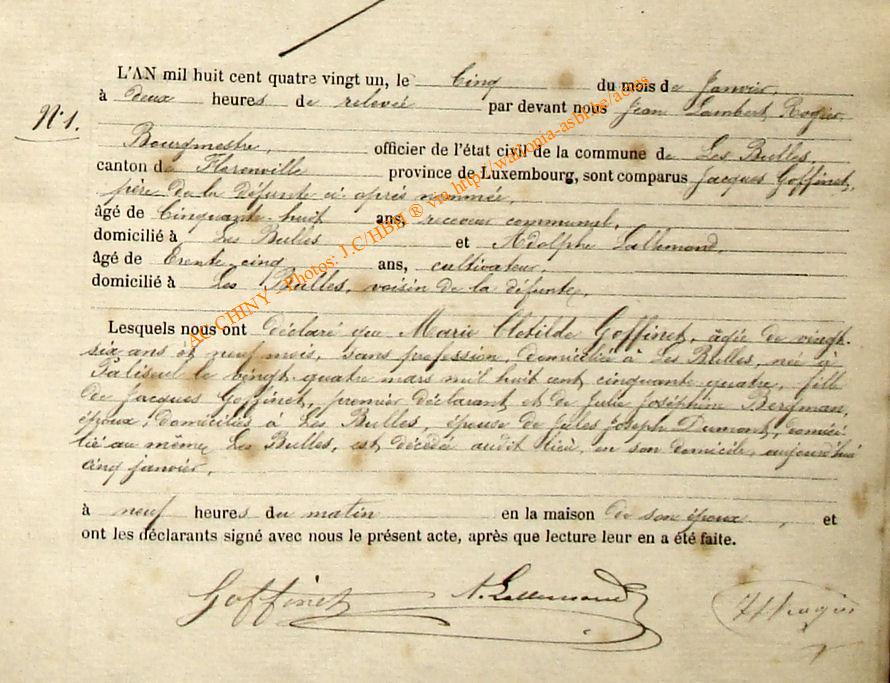 L'AN mil huit cent quatre vingt un, le Cinq du mois de Janvier,
à deux heures de relevée par devant nous Jean Lambert Rogier,
N° 1.
Bourgmestre, officier de l'état civil de la commune de Les Bulles,
canton de Florenville province de Luxembourg, sont comparus Jacques Goffinet,
père de la défunte ci après nommée,
âgé de Cinquante-huit ans, receveur communal,
domicilié à Les Bulles et Adolphe Lallemand,
âgé de Trente-cinq ans, cultivateur,
domicilié à Les Bulles, voisin de la défunte,
Lesquels nous ont déclaré que Marie Clotilde Goffinet, âgée de vingt-
six ans et neuf mois, sans profession, domiciliée à Les Bulles, née à
Paliseul le vingt-quatre mars mil huit cent cinquante-quatre, fille
de Jacques Goffinet, premier déclarant et de Julie Joséphine Bergman,
époux, domiciliés à Les Bulles, épouse de Jules Joseph Dumont, domici-
lié au même Les Bulles, est décédée audit lieu, en son domicile, aujourd'hui
cinq janvier,
à neuf heures du matin en la maison de son époux, et
ont les déclarants signé avec nous le présent acte, après que lecture leur en a été faite.
Goffinet A. Lallemand JLRogier
Ac CHINY - Photos: J.C/HBH ® via http://wallonia-asbl.be/actes